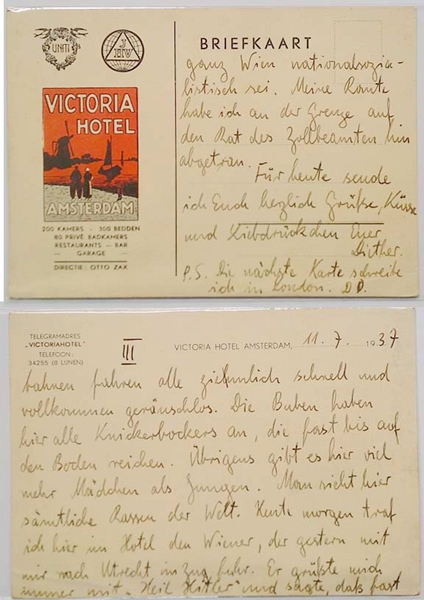 UNITI
VICTORIA
HOTEL
AMSTERDAM
200 KAMERS - 300 BEDDEN
80 PRIVÉ BADKAMERS
RESTAURANTS - BAR
- GARAGE -
DIRECTIE: OTTO ZAX
BRIEFKAART
ganz Wien nationalsozia-
listisch sei. Meine Route
habe ich an der Grenze auf
den Rat des Zollbeamten hin
abgetran.
Für heute sende
ich Euch herzlich Grüße, Küsse
und Liebdrückchen Euer
Dither.
P.S. Die nächste Karte schreibe
ich in London. D.D.
TELEGRAMADRES
"VICTORIAHOTEL"
TELEFOON:
34255 (8 LIJNEN)
III
VICTORIA HOTEL AMSTERDAM, 11.7. 1937
bahnen fahren alle ziehmlich schnell und
vollkommen geräuschlos. Die Buben haben
hier alle Knickerbockers an, die fast bis auf
den Boden reichen. Übrigens gibt es hier viel
mehr Mädchen als Jungen. Man sieht hier
sämtliche Rassen der Welt. Heute morgen traf
ich hier im Hotel den Wiener, der gestern mit
mir nach Utrecht im Zug fuhr. Er grüßte mich
immer mit "Heil Hitler" und sagte, daß fast